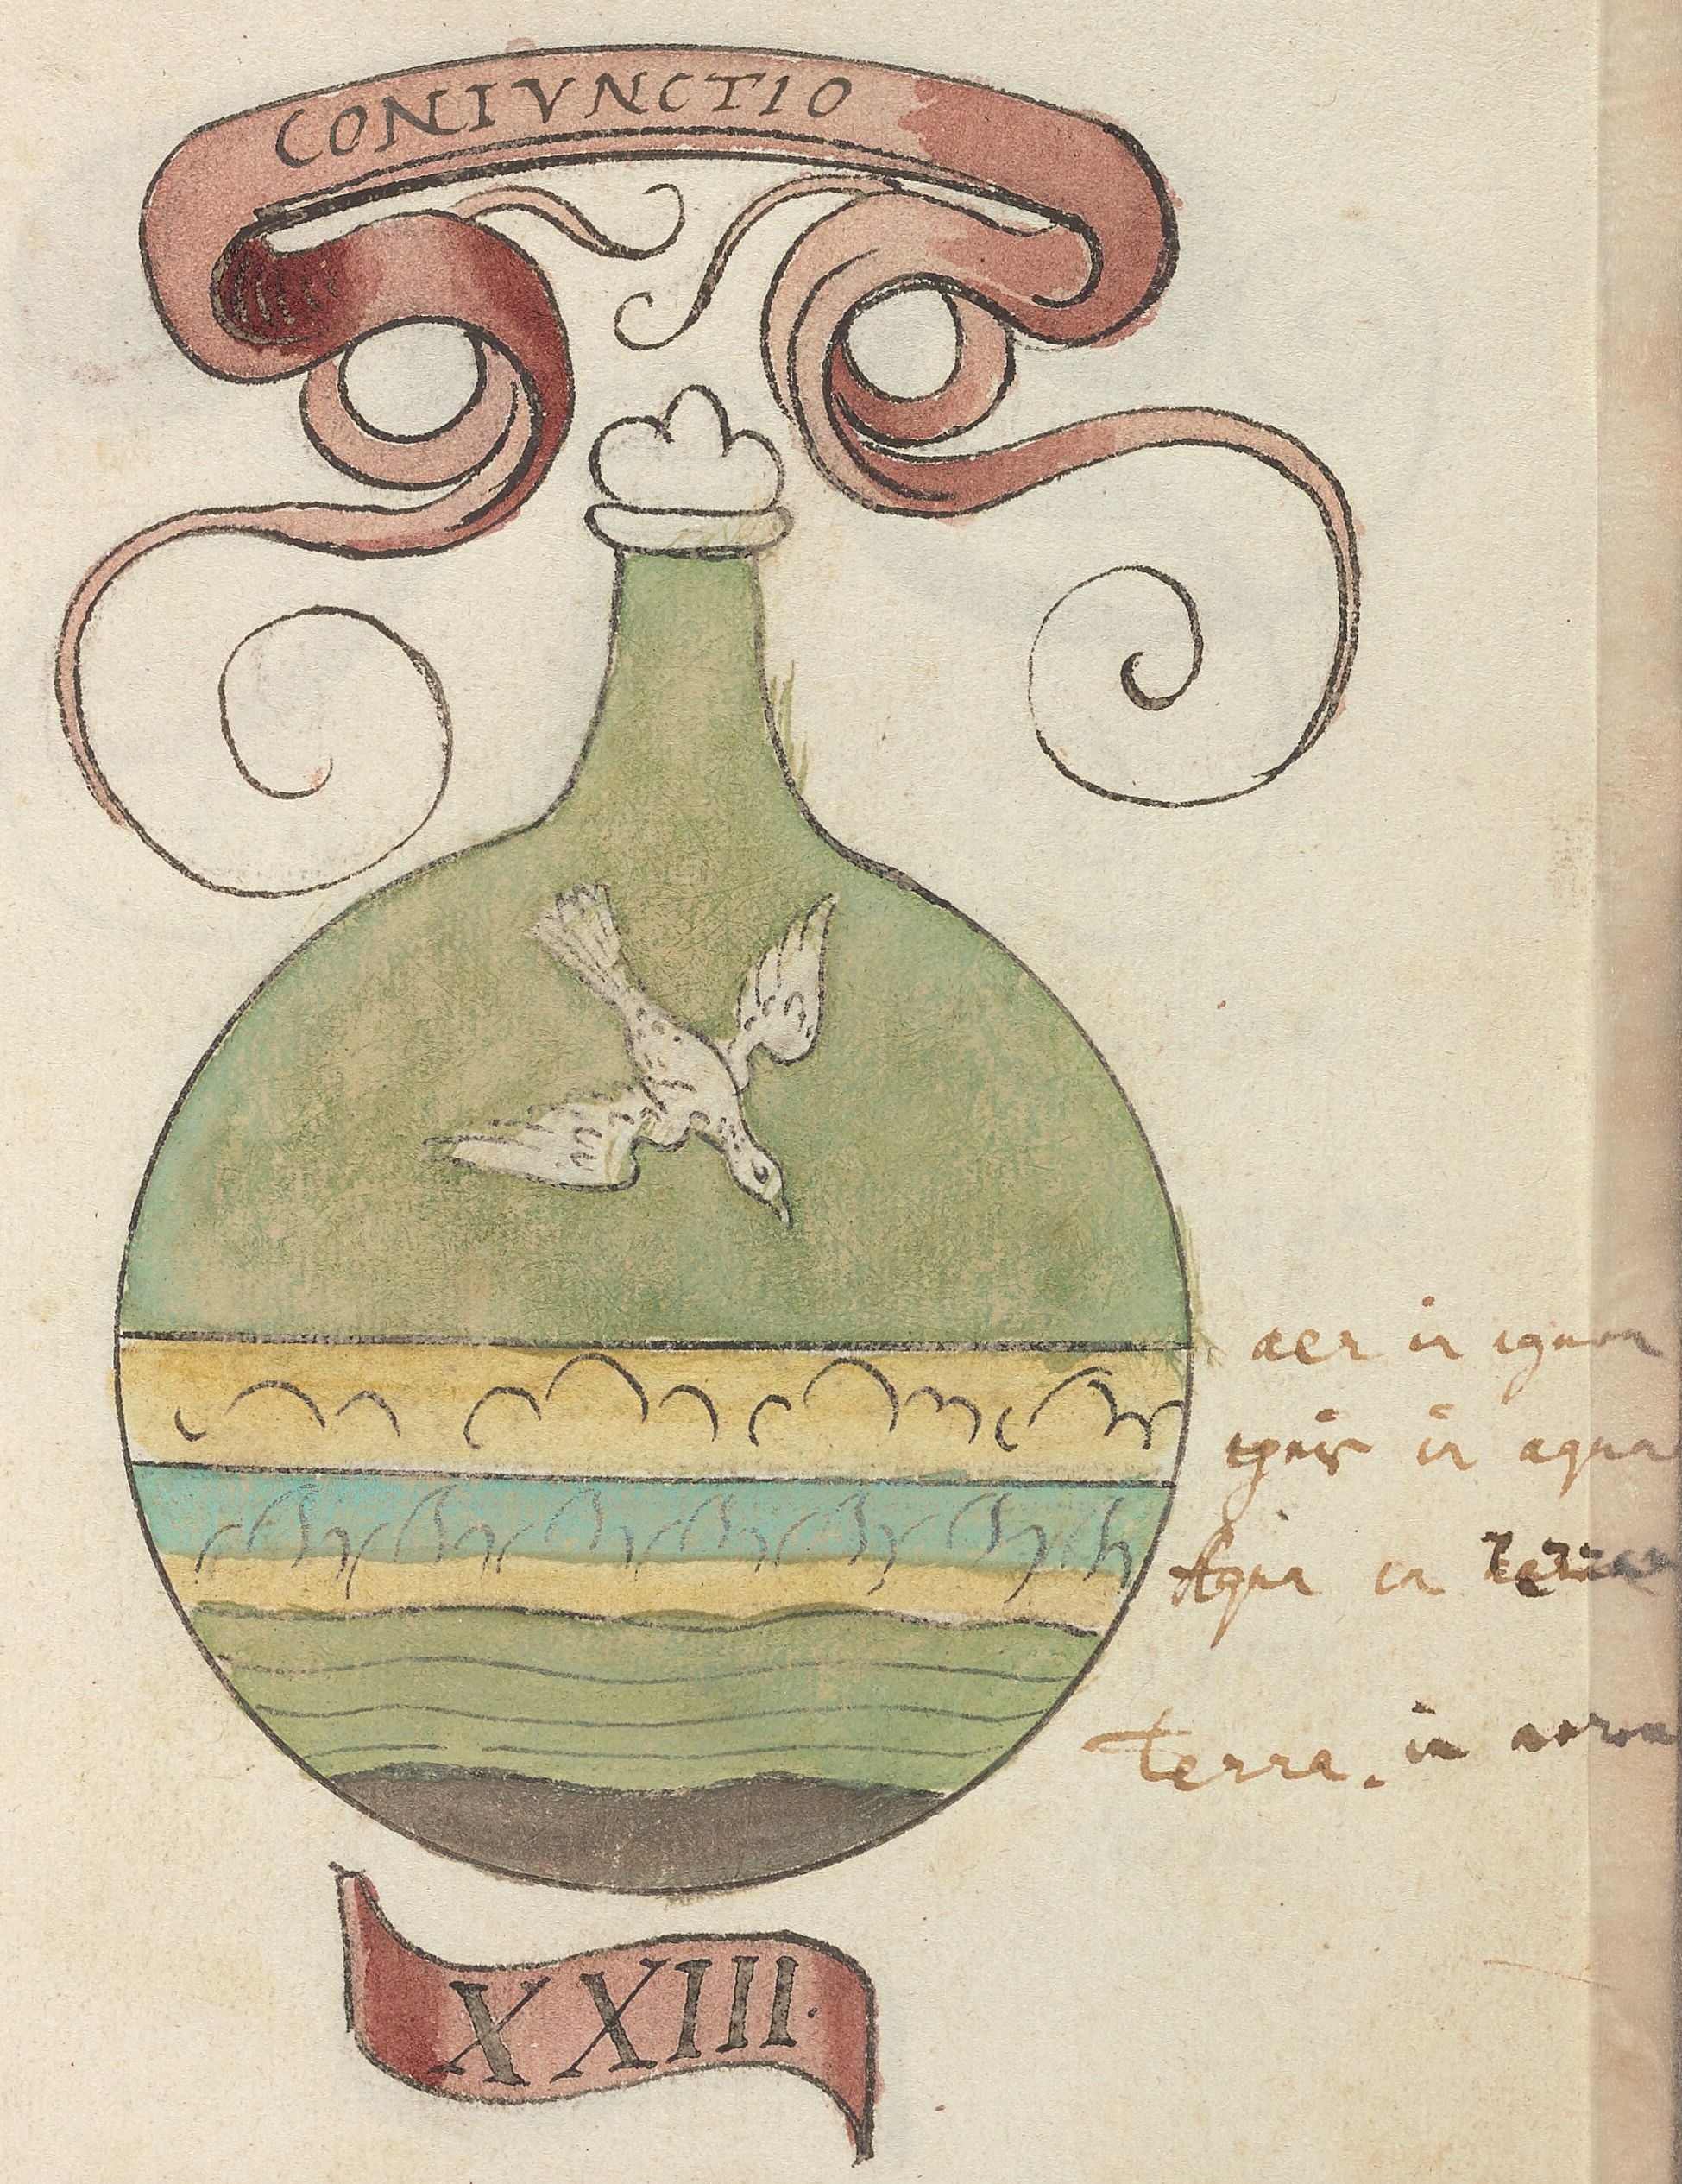 CONIVNCTIO
aer in ignem
ignis in aqua
Aqua in terram
terra. in
XXIII·